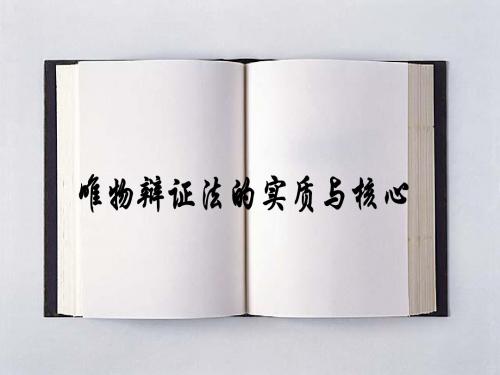 唯物辩证法的实质与核心